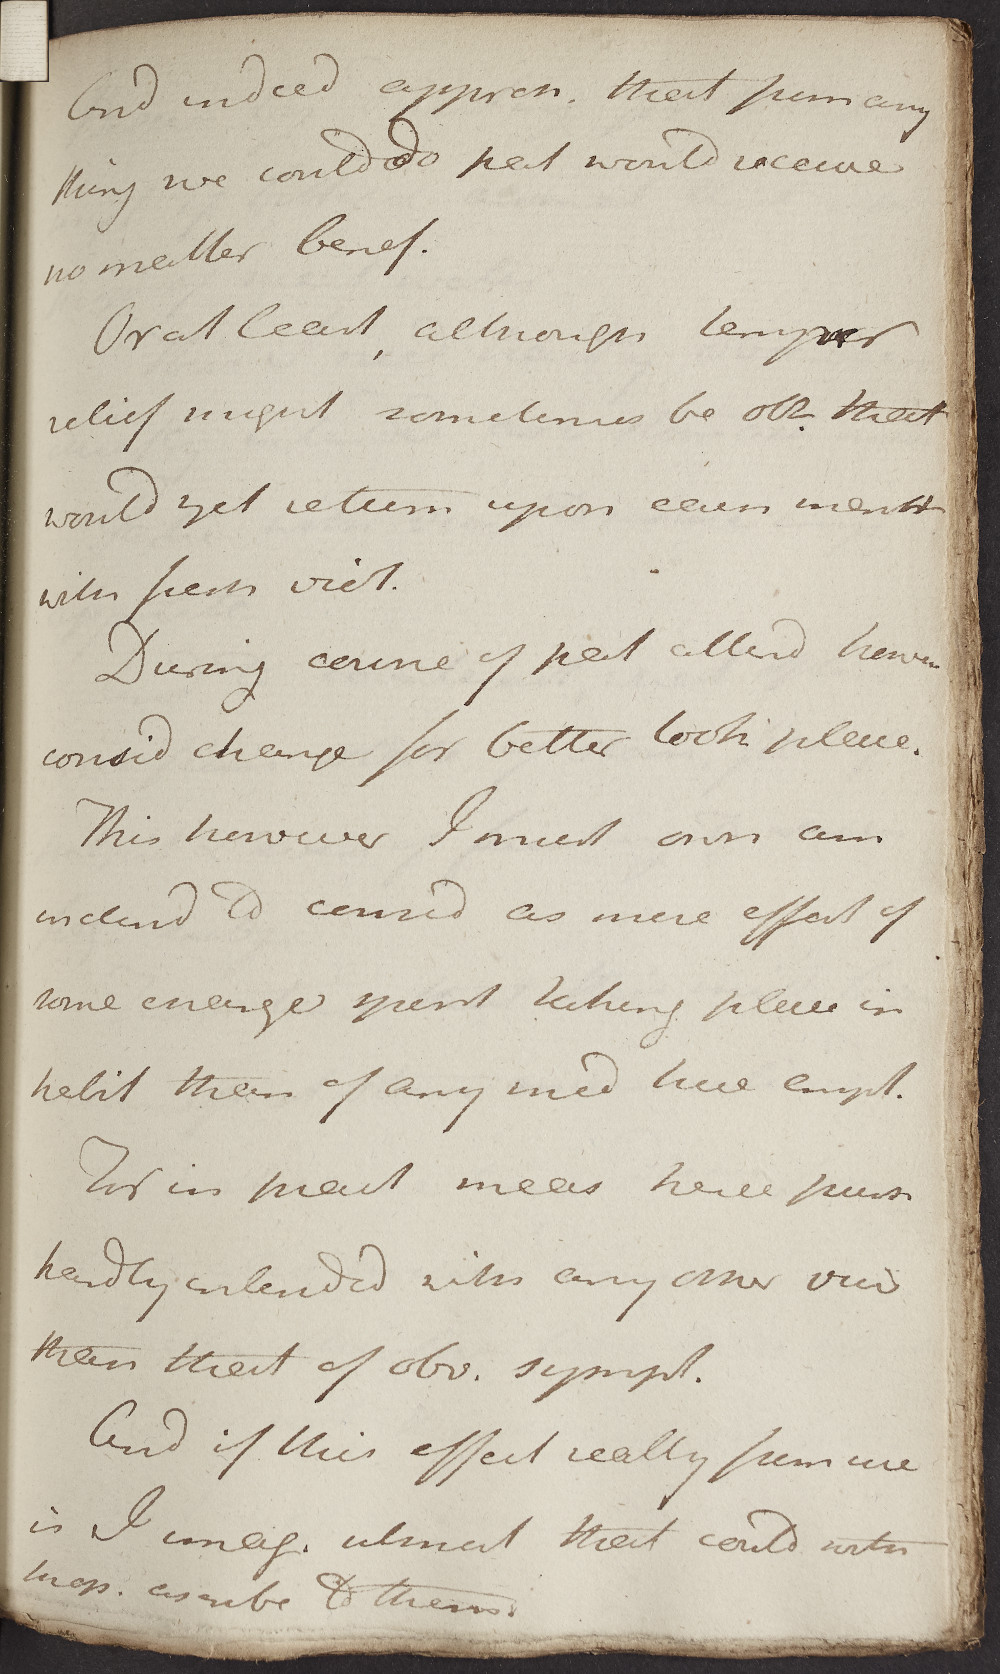 And indeed appreh. that from any
thing we could do pat would receive
no matter benef.
Or at least, although tempor
relief might sometimes be obt. that
would yet return upon each month
with fresh viol.
During course of pat attend howev
consid change for better took place.
This however I must own am
inclind to consid as mere effect of
some change spont taking place in
habit than of any med here empl.
For in pract meas here purs
hardly intended with any other view
than that of obv. sympt.
And if this effect really from use
is I imag. utmost that could with
ascribe to them.